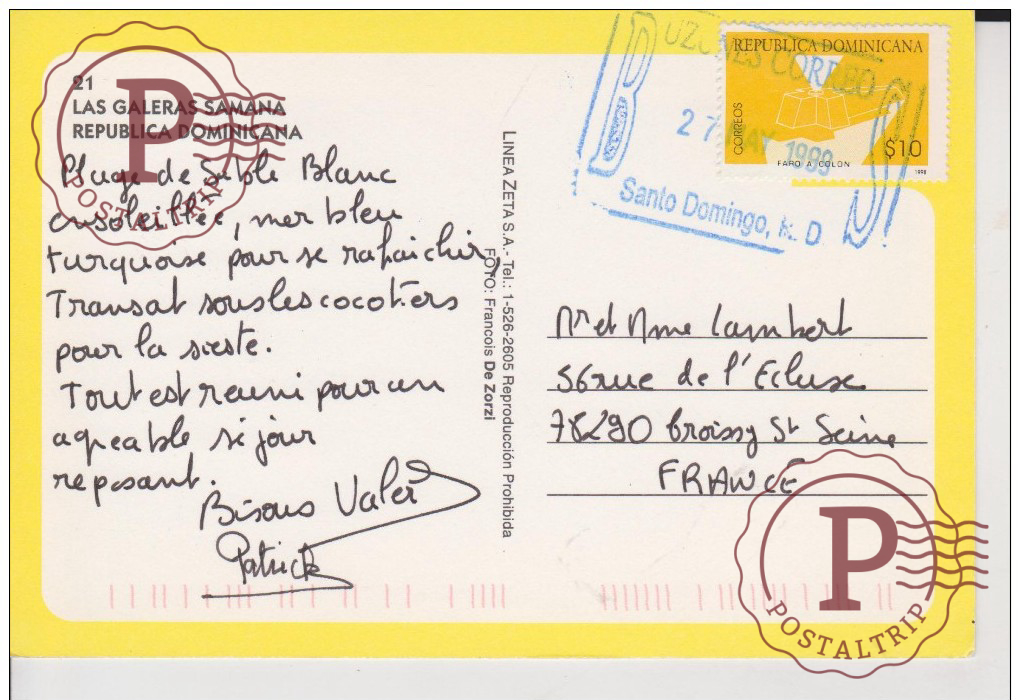 21
LAS GALERAS SAMANA
REPUBLICA DOMINICANA
Plage de Sable Blanc
ensoleillée, mer bleu
turquoise pour se rafraichir,
Transat sous les cocotiers
pour la sieste.
Tout est réuni pour un
agréable séjour
reposant.
Bisous Valer
Patrick
LINEA ZETA S.A.- Tel.: 1-526-2605 Reproducción Prohibida
FOTO: Francois De Zorzi
BUZONES CORREO
27 MAY 1999
Santo Domingo, R. D
REPUBLICA DOMINICANA
CORREOS
$10
FARO A COLON
1998
Mr et Mme Lambert
56 rue de l'Ecluse
78290 Croissy St Seine
FRANCE
P
POSTALTRIP
P
POSTALTRIP